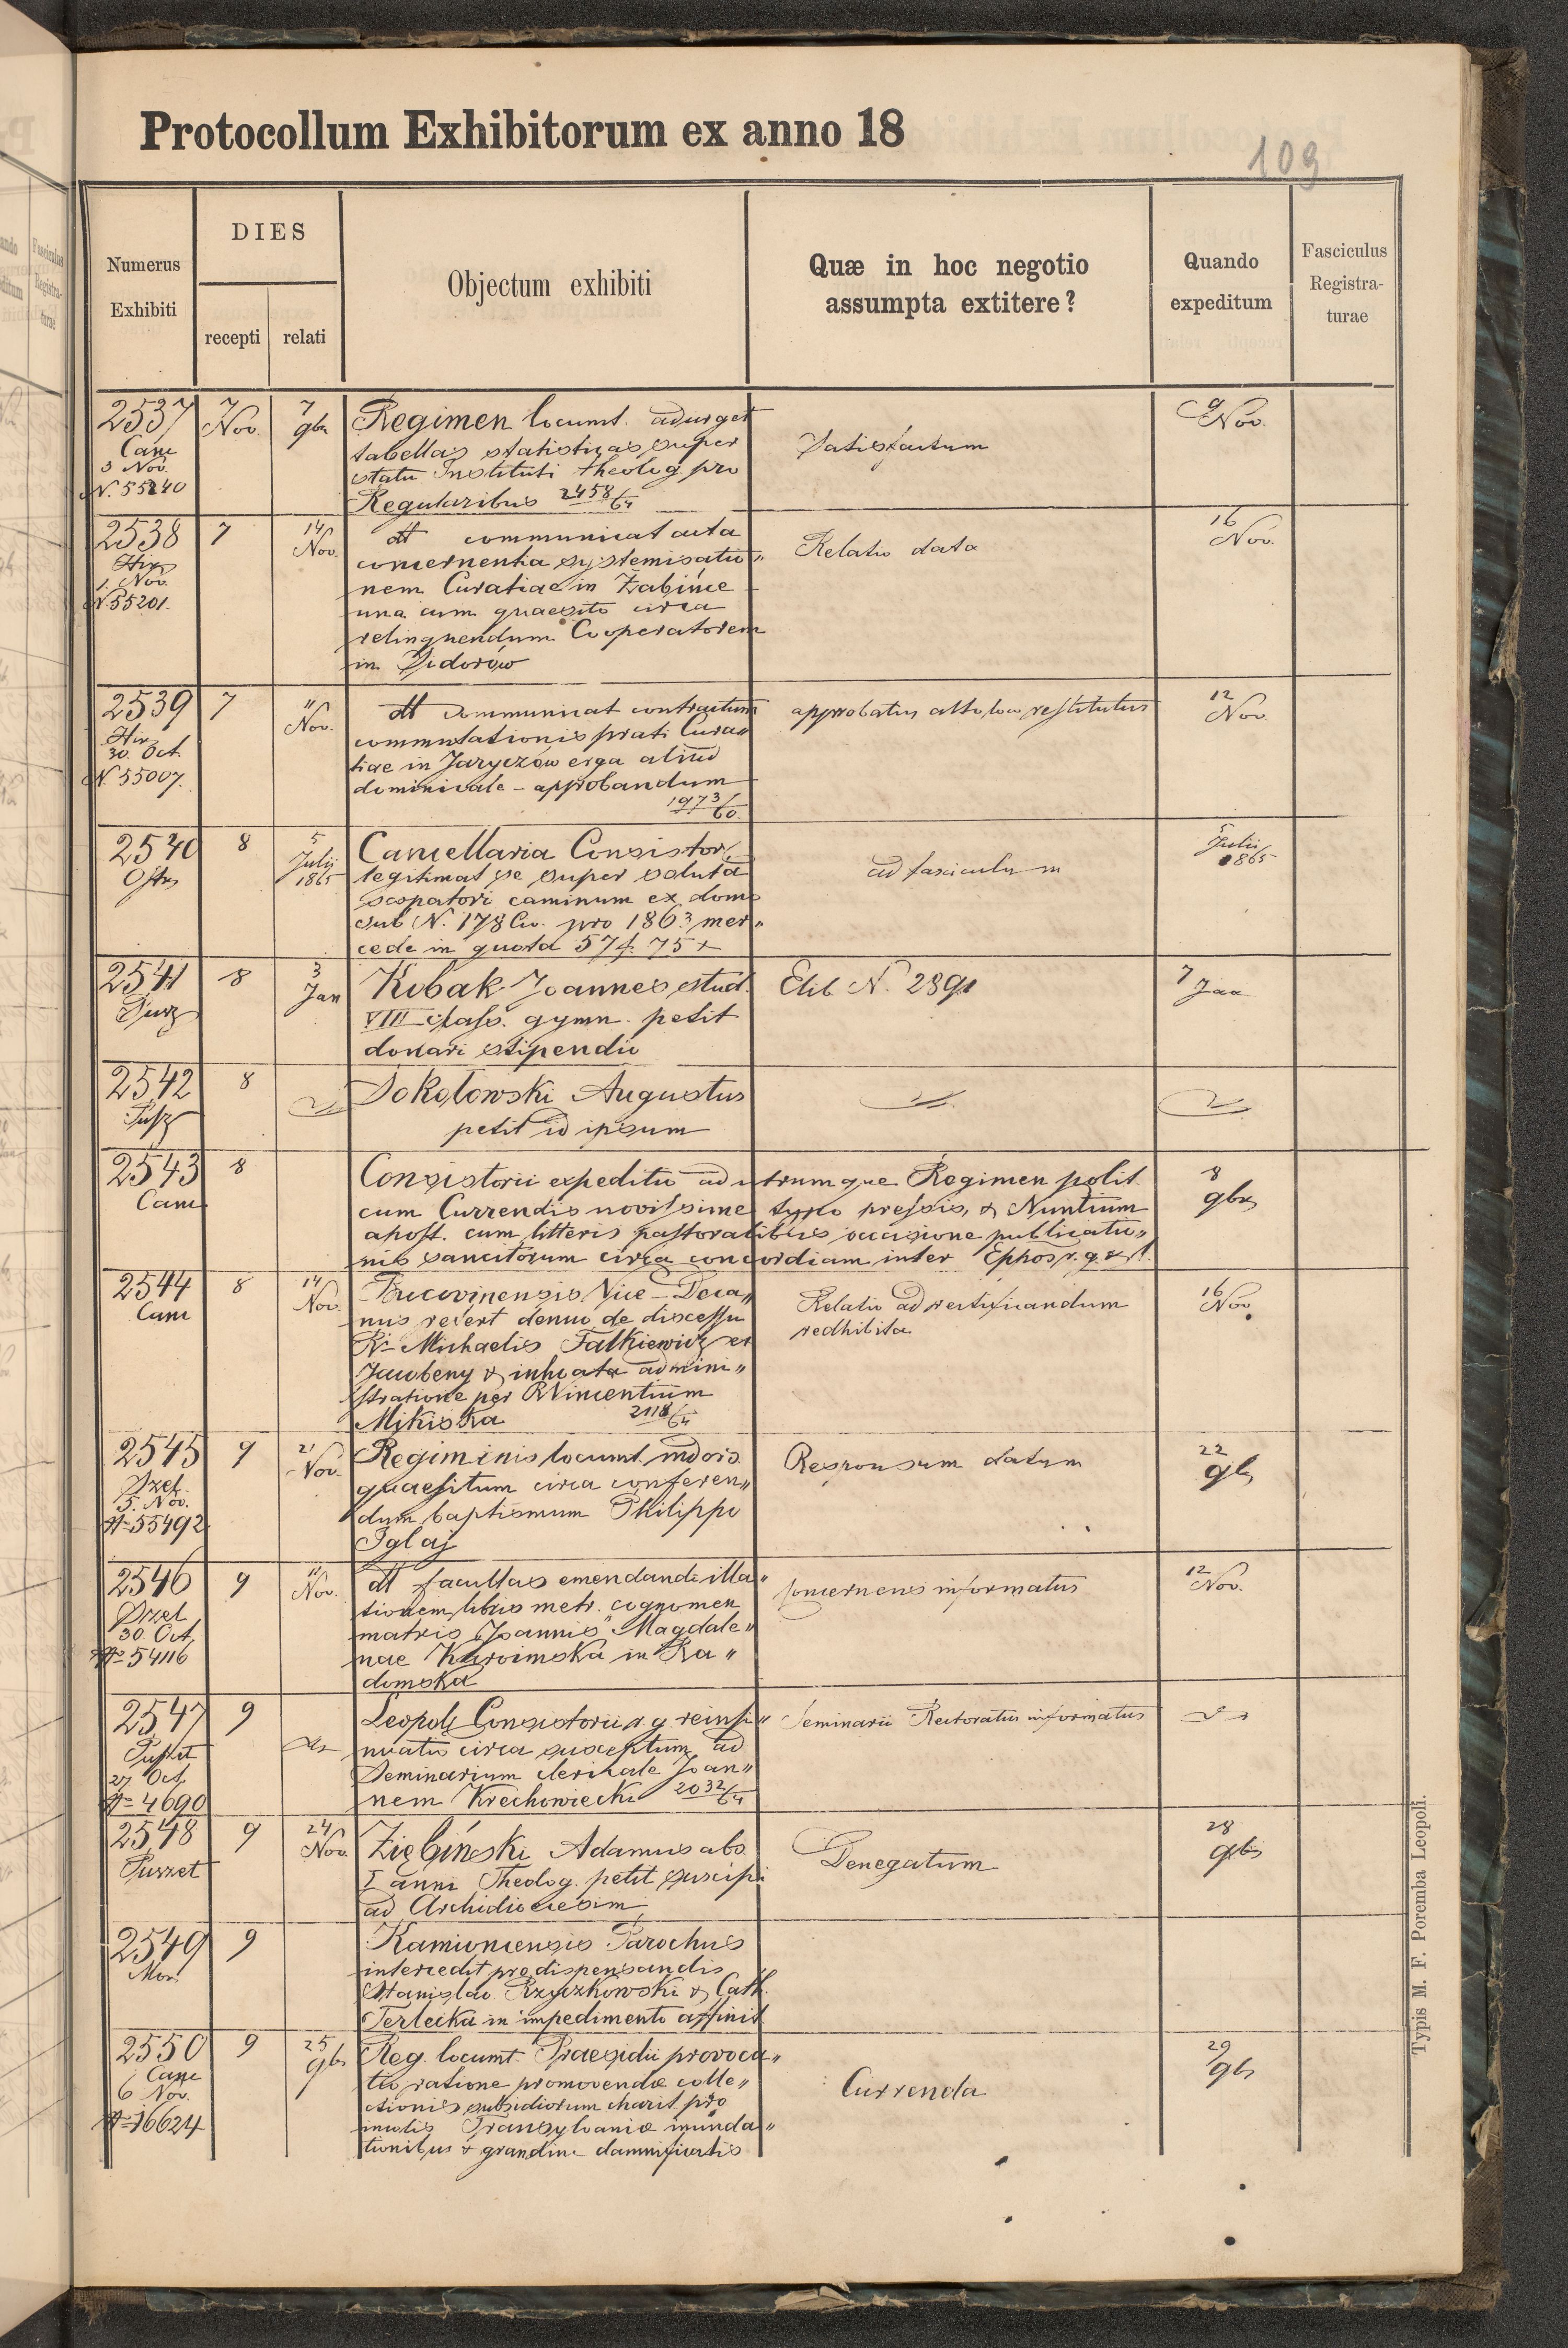 Protocollum Exhibitorum ex anno 18
109
Numerus
Exhibiti
DIES
recepti
relati
Objectum exhibiti
Quæ in hoc negotio
assumpta extitere?
Quando
expeditum
Fasciculus
Registra-
turae
2537
Canc
3 Nov.
N. 55240
7
Nov.
7
9br
Regimen locumt. adurget
tabellas statisticas super
statu Instituti theolog. pro
Regularibus 2458/64
Satisfactum
9
Nov.
2538
1. Nov.
N. 55201.
7
14
Nov.
dtt communicat acta
concernentia systemisatio„
nem Curatiae in Żabińce
una cum quaesito circa
relinquendum Cooperatorem
in Sidorów
Relatio data
16
Nov.
2539
30. Oct.
N. 55007.
7
11
Nov.
dtt communicat contractum
commutationis prati Cura„
tiae in Jaryczów erga aliud
dominicale – approbandum
1973/60.
approbatus altolow restitutus
12
Nov.
2540
8
5
Julii
1865
Cancellaria Consistor.
legitimat se super soluta
scopatori caminum ex domo
sub N. 178 Civ. pro 1863 mer„
cede in quota 57 f. 75 x
ad fasciculum
5
Julii
1865
2541
8
3
Jan
Kubak Joannes stud.
VIII class. gymn. petit
donari stipendio
Exib N. 2891
7
Jan
2542
8
Sokołowski Augustus
petit id ipsum
2543
Canc
8
Consistorii expeditio ad utrumque Regimen polit.
cum Currendis novissime typo pressis, & Nuntium
apost. cum litteris pastoralibus occasione publicatio„
nis sancitorum circa concordiam inter Eppos r. g. & l.
8
9br
2544
Canc
8
14
Nov.
Bucovinensis Vice-Deca„
nus refert denuo de discessu
Rdi Michaelis Falkiewicz ex
Jacobeny & inhoata admini„
stratione per R Vincentium
Mikiska 2118/64
Relatio ad rectificandum
redhibita
16
Nov.
2545
Przel.
5. Nov.
N 55492
9
21
Nov.
Regiminis locumt. indors.
quaesitum circa conferen„
dum baptismum Philippo
Iglaj
Responsum datum
22
9br
2546
Przel
30 Oct.
No 54116
9
11
Nov.
dtt facultas emendandi illa„
tionem libris metr. cognomen
matris Joannis Magdale„
nae in Ra„
domska
Concernens informatus
12
Nov.
2547
27 Oct.
No 4690
9
Leopol. Consistorii r. g. reinsi„
nuatio circa susceptum ad
Seminarium clericale Joan„
nem Krechowiecki 2032/64
Seminarii Rectoratus informatus
2548
9
24
Nov.
Ziębiński Adamus abs.
I anni Theolog. petit suscipi
ad Archidioecesim
Denegatum
28
9br
2549
Mor.
9
Kamioncensis Parochus
intercedit pro dispensandis
Stanislao Rzyczkowski & Cath.
Terlecka in impedimento affinit
2550
Canc
6 Nov.
No 16624
9
25
9br
Reg. locumt. Praesidii provoca„
tio ratione promovendæ colle„
ctionis subsidiorum charit. pro
incolis Transylvaniæ inunda„
tionibus & grandine damnificatis
Currenda
29
9br
Typis M. F. Poremba Leopoli.